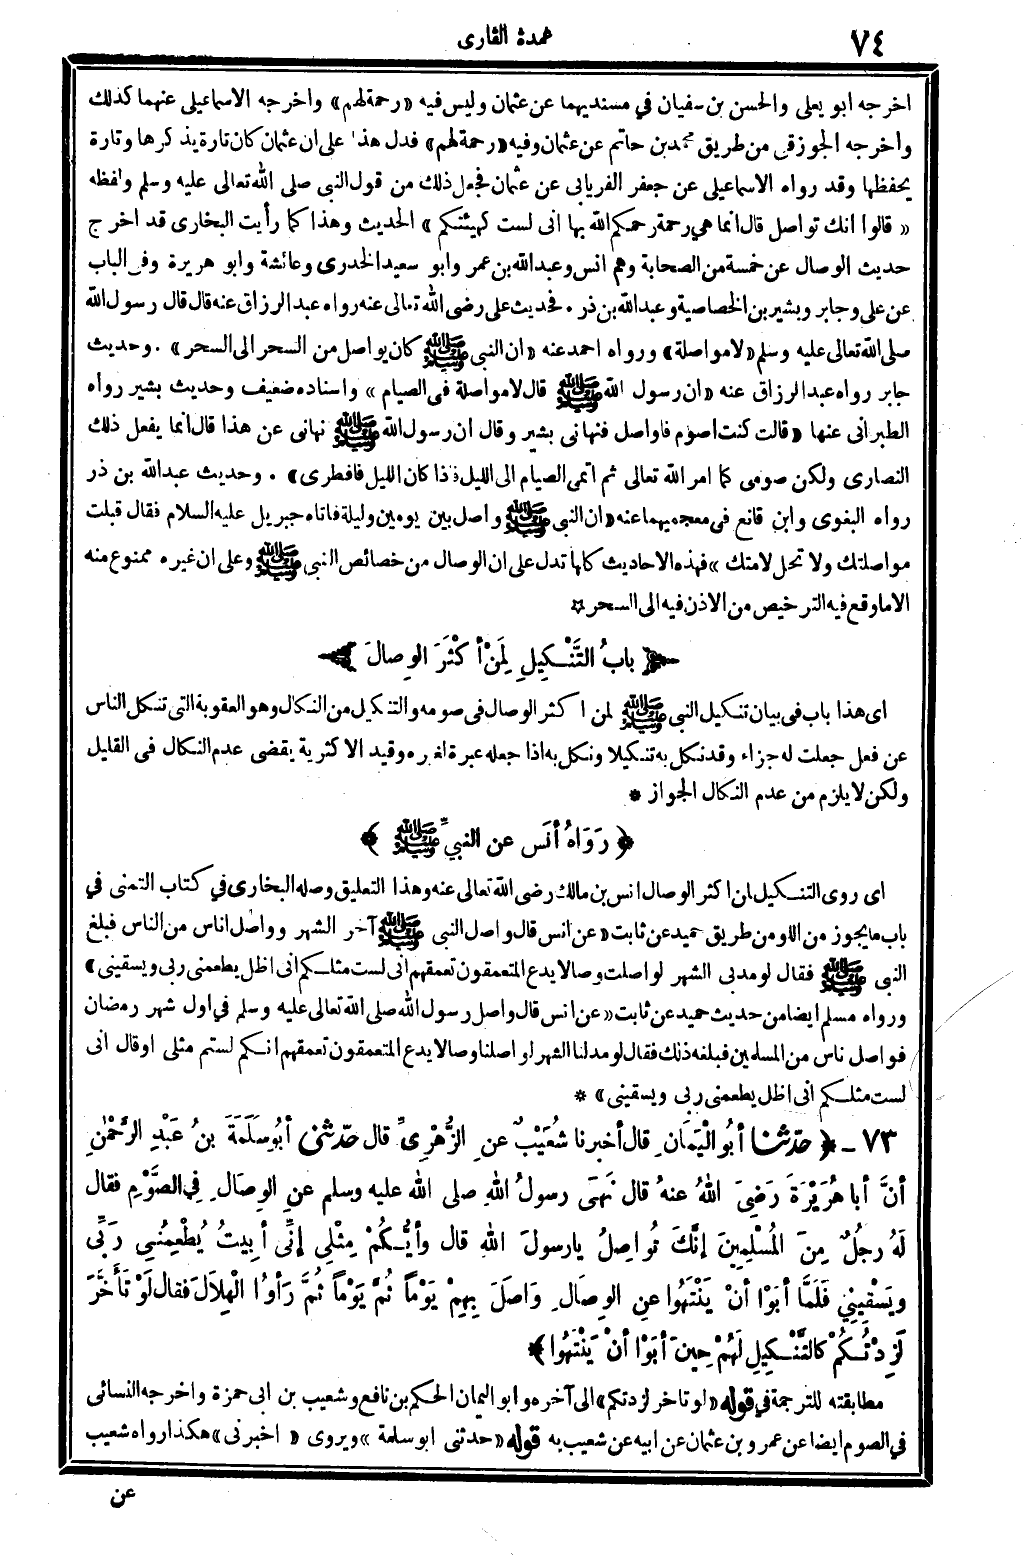 ٧٤
عمدة القارى
اخرجه ابو يعلى والحسن بن سفيان في مسنديهما عن عثمان وليس فيه «رحمة لهم» واخرجه الاسماعيلى عنهما كذلك
وأخرجه الجوزقى من طريق محمد بن حاتم عن عثمان وفيه «رحمة لهم» فدل هذا على ان عثمان كان تارة يذكرها وتارة
يحفظها وقد رواه الاسماعيلى عن جعفر الفريابى عن عثمان فجعل ذلك من قول النبى صلى الله تعالى عليه وسلم ولفظه
« قالوا انك تواصل قال انما هي رحمة رحمكم الله بها انى لست كهيئتكم » الحديث وهذا كما رأيت البخارى قد اخرج
حديث الوصال عن خمسة من الصحابة وهم انس وعبدالله بن عمر وابو سعيد الخدرى وعائشة وابو هريرة وفى الباب
عن على وجابر وبشير بن الخصاصية وعبدالله بن ذر . فحديث على رضى الله تعالى عنه رواه عبد الرزاق عنه قال قال رسول الله
صلى الله تعالى عليه وسلم «لا مواصلة» ورواه احمد عنه «ان النبى ﷺ كان يواصل من السحر الى السحر» . وحديث
جابر رواه عبد الرزاق عنه «ان رسول الله ﷺ قال لا مواصلة فى الصيام » واسناده ضعيف وحديث بشير رواه
الطبرانى عنها «قالت كنت اصوم فاواصل فنهانى بشير وقال ان رسول الله ﷺ نهانى عن هذا قال انما يفعل ذلك
النصارى ولكن صومى كما امر الله تعالى ثم اتمى الصيام الى الليل فاذا كان الليل فافطرى» . وحديث عبدالله بن ذر
رواه البغوى وابن قانع فى معجميهما عنه «ان النبى ﷺ واصل بين يومين وليلة فاتاه جبريل عليه السلام فقال قبلت
مواصلتك ولا تحل لامتك » فهذه الاحاديث كلها تدل على ان الوصال من خصائص النبى ﷺ وعلى ان غيره ممنوع منه
الا ما وقع فيه الترخيص من الاذن فيه الى السحر ☆
﴿ بابُ التَّنْكِيلِ لِمَنْ أكْثَرَ الوِصالَ ﴾
اى هذا باب فى بيان تنكيل النبى ﷺ لمن اكثر الوصال فى صومه والتنكيل من النكال وهو العقوبة التى تنكل الناس
عن فعل جعلت له جزاء وقد نكل به تنكيلا ونكل به اذا جعله عبرة لغيره وقيد الاكثرية يقضى عدم النكال فى القليل
ولكن لا يلزم من عدم النكال الجواز *
﴿ رَوَاهُ أنَس عن النبيِّ ﷺ ﴾
اى روى التنكيل لمن اكثر الوصال انس بن مالك رضى الله تعالى عنه وهذا التعليق وصله البخارى في كتاب التمنى في
باب ما يجوز من اللو من طريق حميد عن ثابت «عن انس قال واصل النبى ﷺ آخر الشهر وواصل اناس من الناس فبلغ
النبى ﷺ فقال لو مد بى الشهر لواصلت وصالا يدع المتعمقون تعمقهم انى لست مثلكم انى اظل يطعمنى ربى ويسقينى»
ورواه مسلم ايضا من حديث حميد عن ثابت «عن انس قال واصل رسول الله صلى الله تعالى عليه وسلم في اول شهر رمضان
فواصل ناس من المسلمين فبلغه ذلك فقال لو مد لنا الشهر لواصلنا وصالا يدع المتعمقون تعمقهم انكم لستم مثلى او قال انى
لست مثلكم انى اظل يطعمنى ربى ويسقينى» *
٧٣ ـ ﴿ حدّثنا أبُو الْيَمَانِ قال أخبرنا شُعَيْبٌ عنِ الزُّهْرِيِّ قال حدّثنى أبُو سَلَمَةَ بنُ عَبْدِ الرَّحْمٰنِ
أنَّ أبا هُرَيْرَةَ رَضِيَ اللهُ عنهُ قال نَهَى رسولُ اللهِ صلى الله عليه وسلم عنِ الوِصَالِ فِي الصَّوْمِ فقال
لَهُ رجلٌ مِنَ المُسْلِمِينَ إنَّكَ تُواصِلُ يارسولَ اللهِ قال وأيُّكُمْ مِثْلِي إنِّي أبِيتُ يُطْعِمُنِي رَبِّى
ويَسْقِينِي فَلَمَّا أبَوْا أنْ يَنْتَهُوا عنِ الوِصَالِ وَاصَلَ بِهِمْ يَوْماً ثُمَّ يَوْماً ثُمَّ رَأوُا الْهِلاَلَ فقال لَوْ تَأخَّرَ
لَزِدْتُكُمْ كالتَّنْكِيلِ لَهُمْ حِينَ أبَوْا أنْ يَنْتَهُوا ﴾
مطابقته للترجمة في قوله «لو تاخر لزدتكم» الى آخره وابو اليمان الحكم بن نافع وشعيب بن ابى حمزة واخرجه النسائى
في الصوم ايضا عن عمرو بن عثمان عن ابيه عن شعيب به قوله «حدثنى ابو سلمة » ويروى « اخبرنى» هكذا رواه شعيب
عن